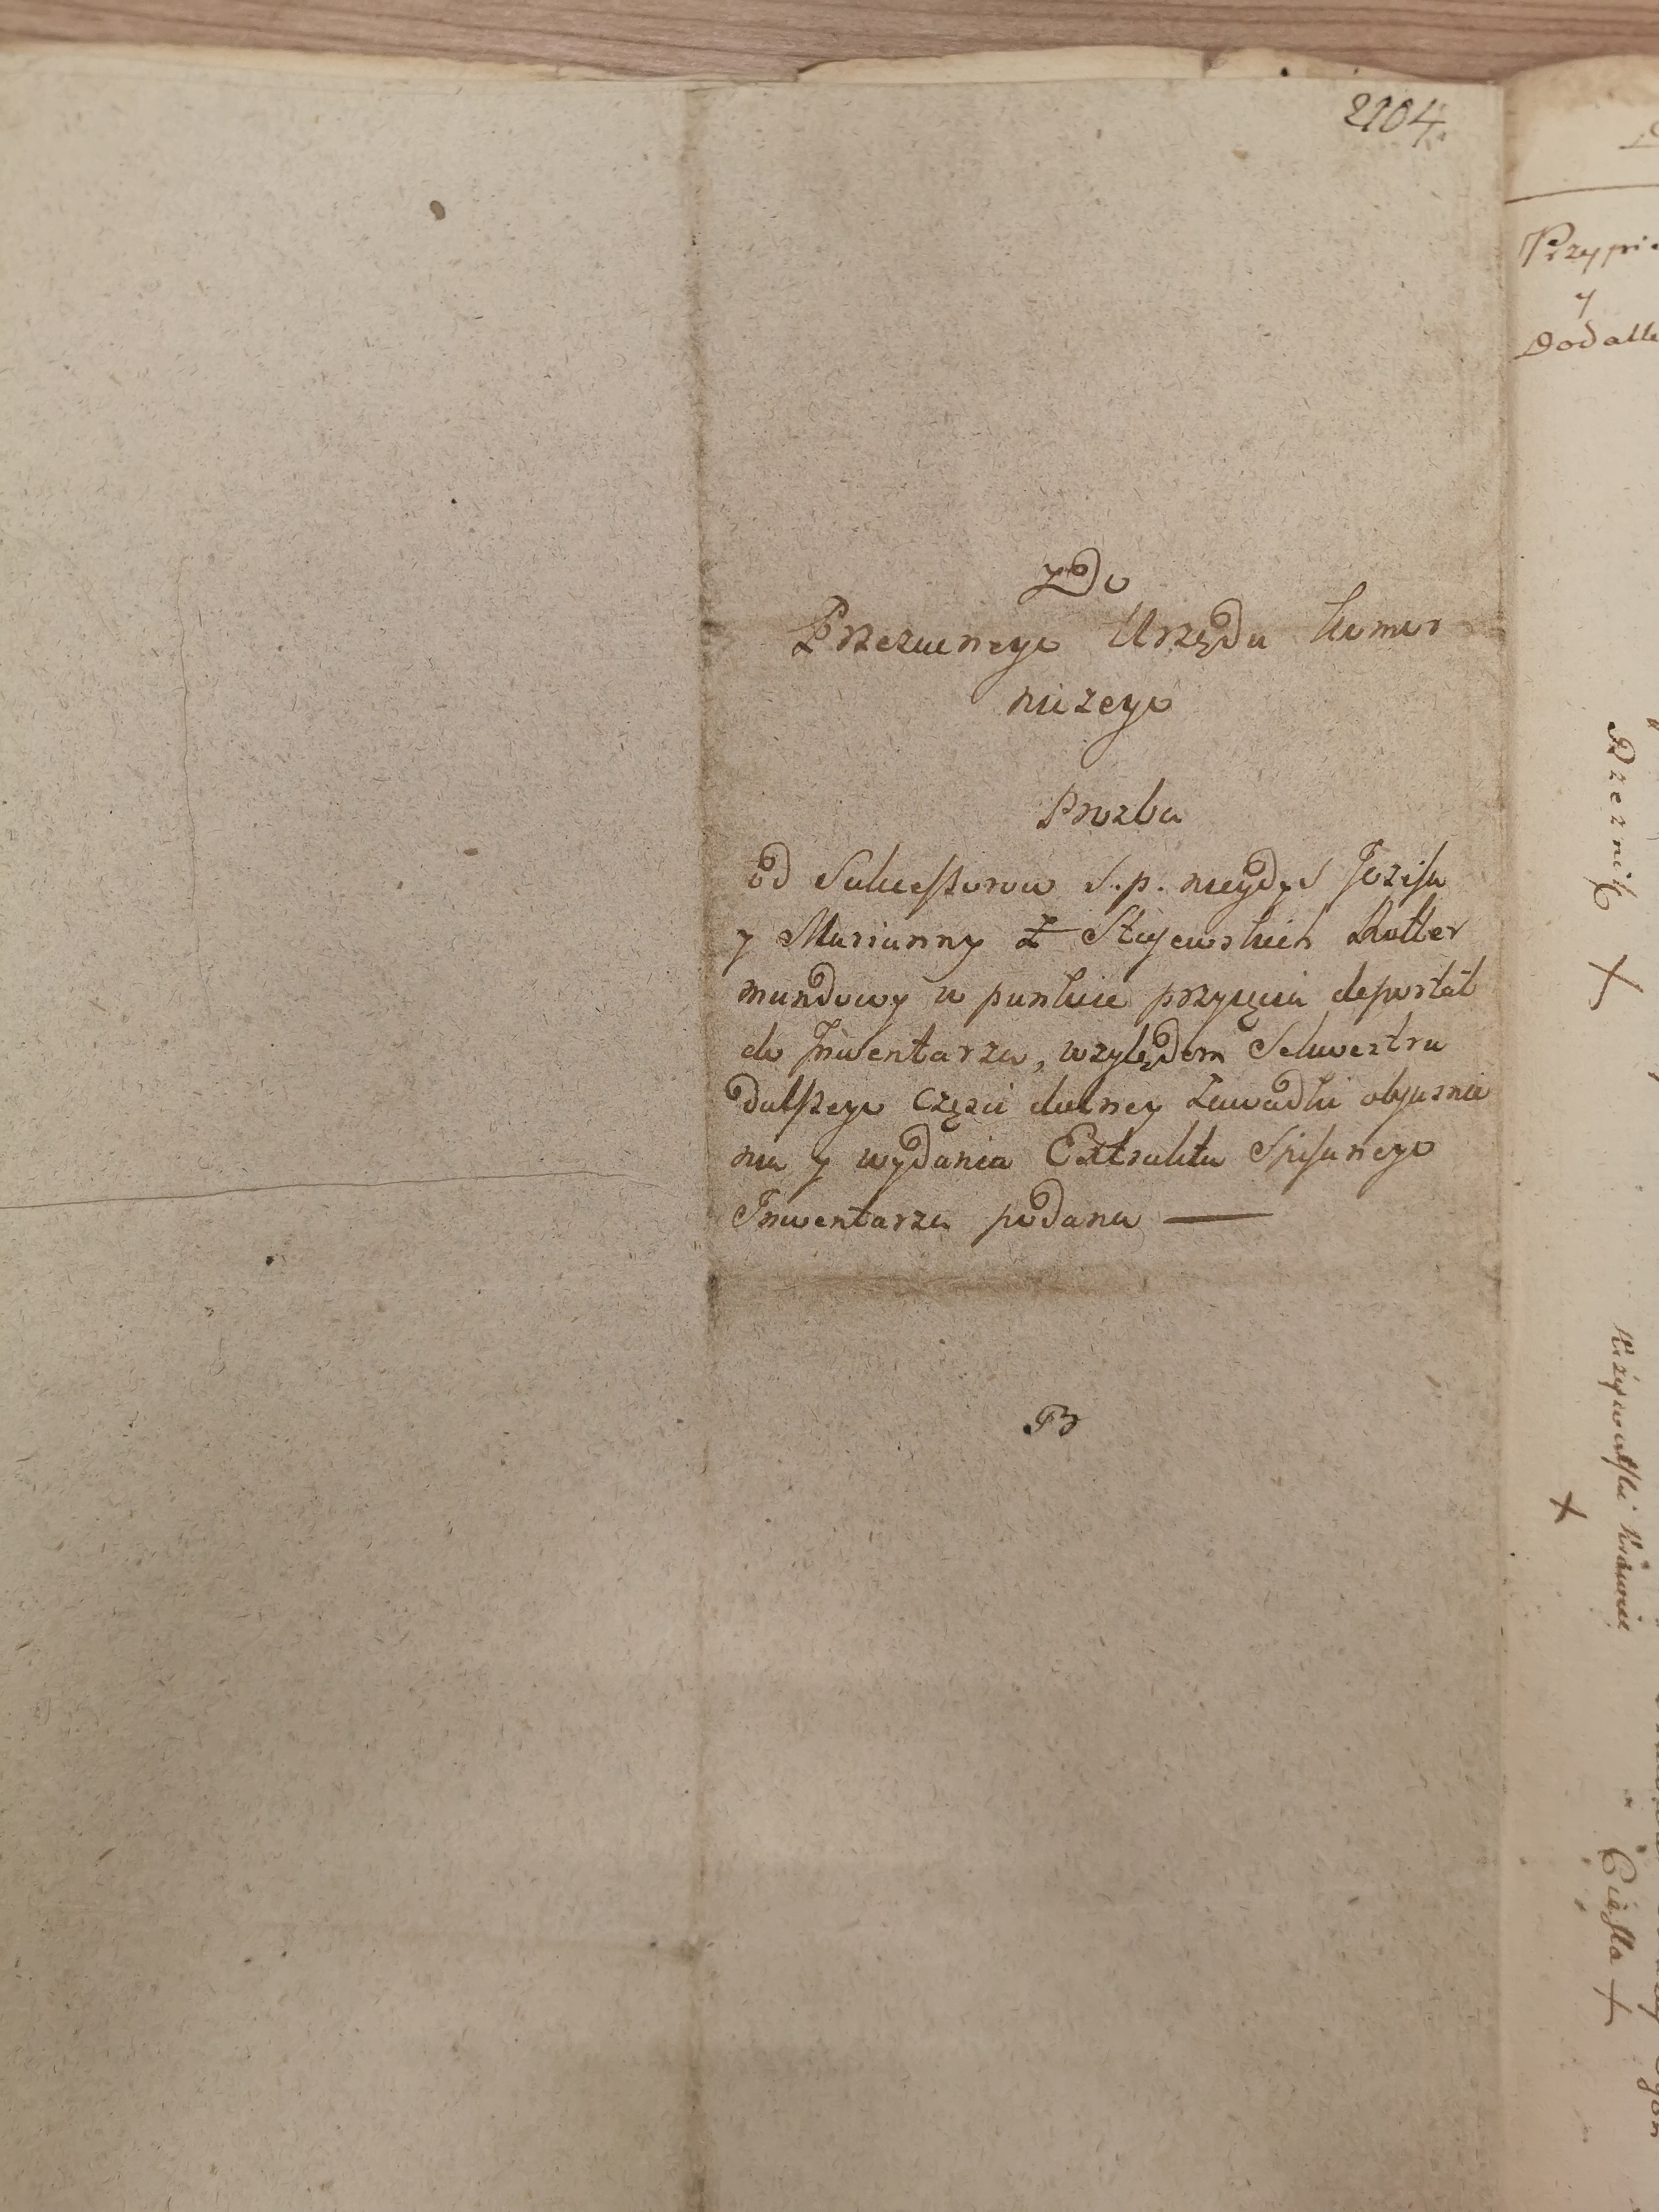 2104.
Do
Przezacnego Urzędu Komor
niczego
Prozba
od Sukcessorow S. p. niegdys Jozefa
y Marianny z Stojewskich Rotter
mundowy w punkcie przyięcia deportat
do Inwentarza, względem Selwestra
dalszego części dolney Zawadki obiasnie
nia y wydania Extraktu Spisanego
Inwentarza podana —
B
Przypi
y
Dodatk
Rzeznik
X
Krzywalski Krawiec
X
Ciesla X